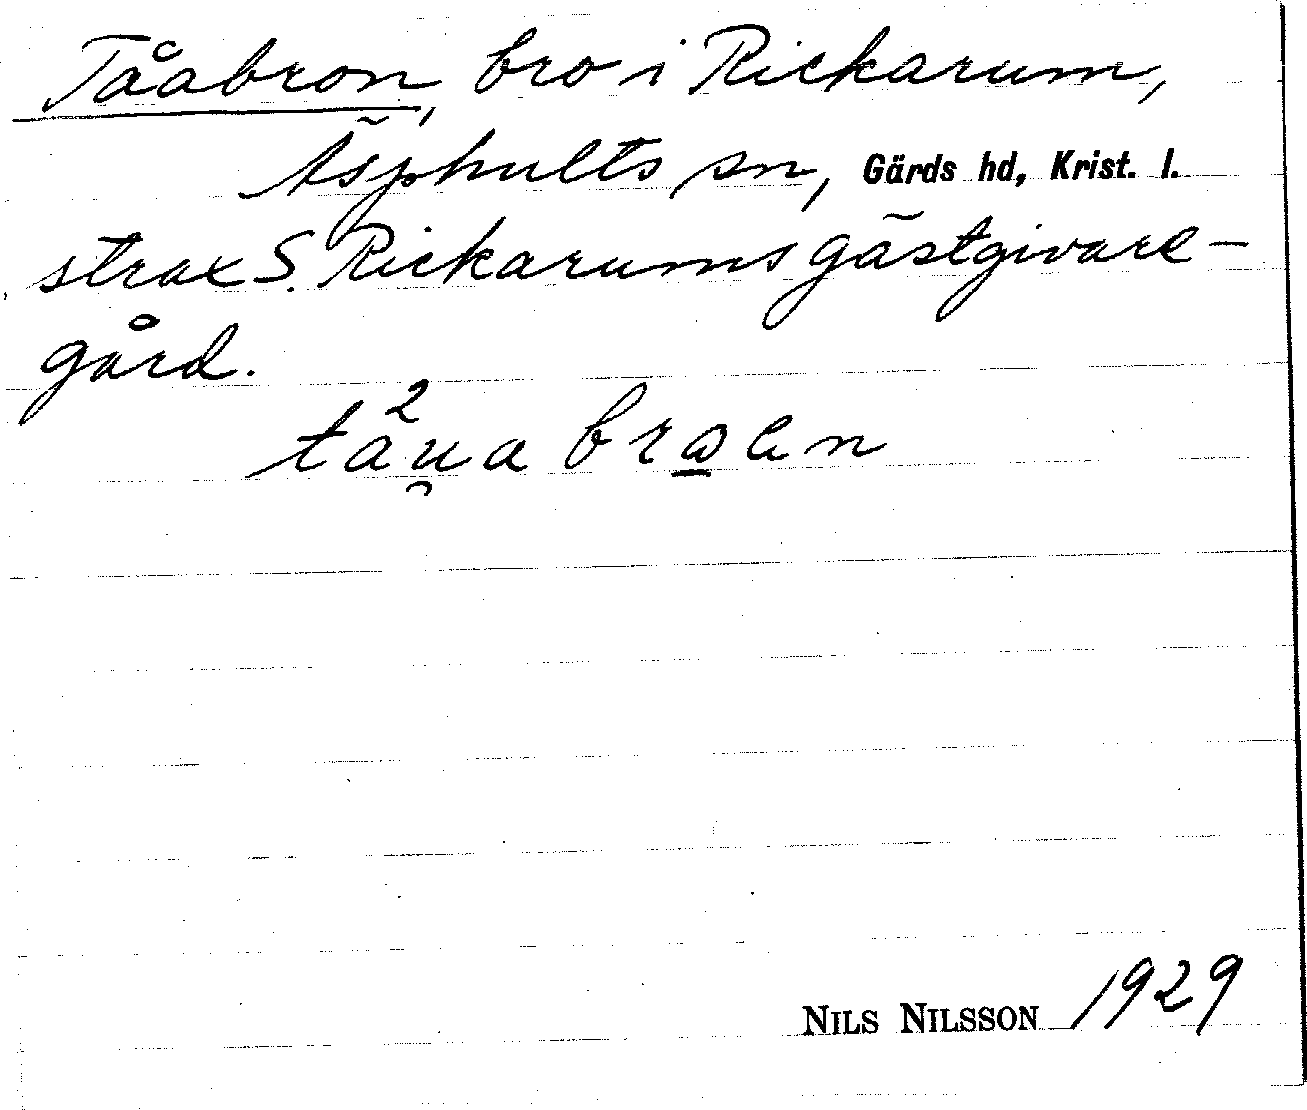 Tåabron, bro i Rickarum,
Äsphults sn, Gärds hd, Krist. l.
strax S. Rickarums gästgivare-
gård.
tå²u̯a brꞷen
NILS NILSSON 1929